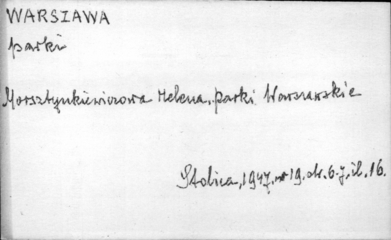 WARSZAWA
parki
Morsztynkiewiczowa Helena, parki Warszawskie
Stolica, 1947, nr 19, str. 6-7, il. 16.